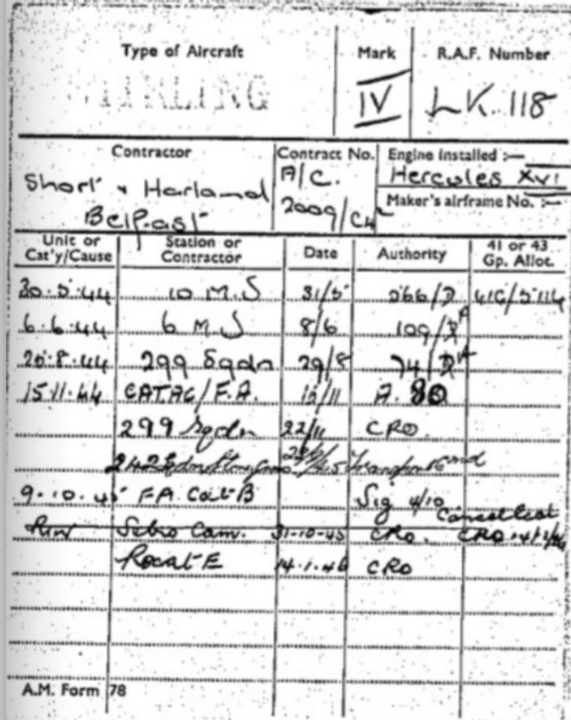 Type of Aircraft Mark R.A.F. Number
STIRLING IV LK. 118
Contractor Contract No. Engine installed :—
Short & Harland A/C. Hercules XVI
Belfast 2009/C4 Maker's airframe No. :—
Unit or Cat'y/Cause Station or Contractor Date Authority 41 or 43 Gp. Allot.
30.5.44 10 M.S 31/5 366/D 41G/5114
6.6.44 6 M.S 8/6 109/
20.8.44 299 Sqdn 29/8 74/
15.11.44 CAT.AC/F.A. 15/11 A. 80
299 Sqdn 22/11 CRO.
242 Sqdn
9.10.45 FA Cat B Sig 4/10
Cancelled
RIW Sebro Cam. 31-10-45 CRO. CRO
Recat E 14.1.46 CRO
A.M. Form 78